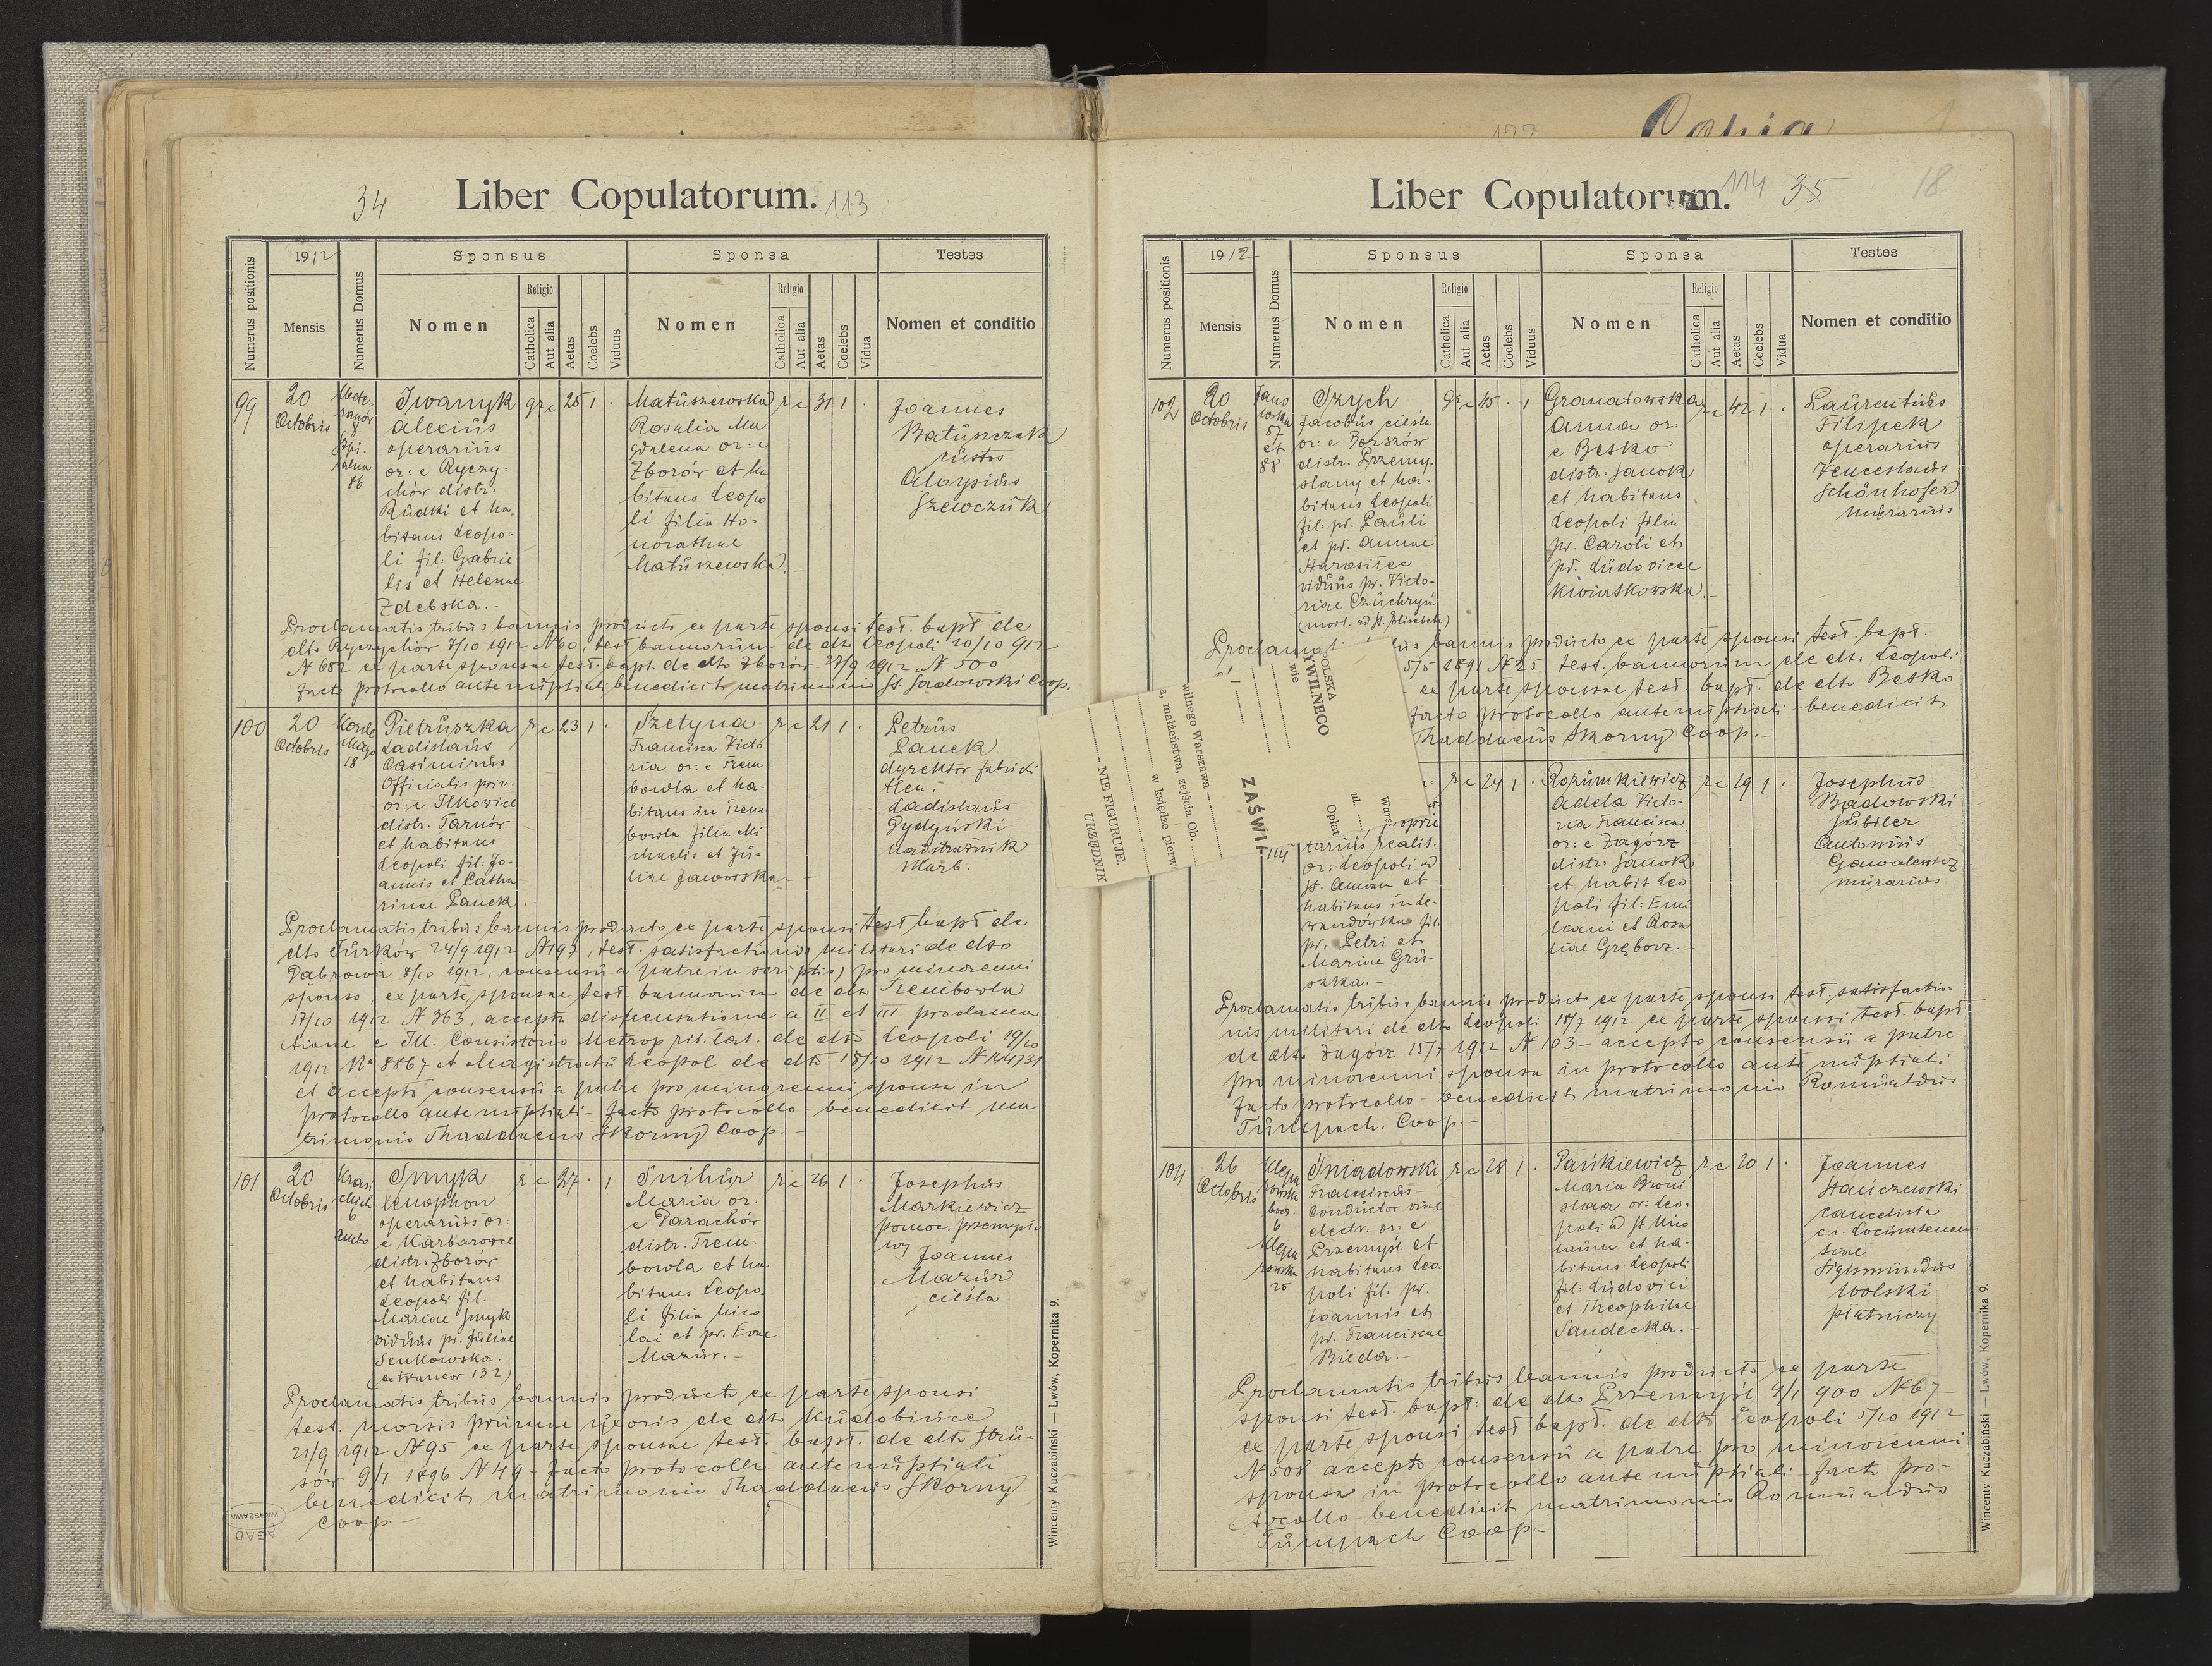 34 Liber Copulatorum. 113
Numerus positionis
1912
Mensis
Numerus Domus
Sponsus
Nomen
Religio
Catholica
Aut alia
Aetas
Coelebs
Viduus
Sponsa
Nomen
Religio
Catholica
Aut alia
Aetas
Coelebs
Vidua
Testes
Nomen et conditio
99
20
Octobris
8
86
Iwanyk
Alexius
operarius
or: e Ryczy-
chów distr.
Rudki et ha-
bitans Leopo-
li fil: Gabrie-
lis et Helenae
Zdebska.
gr c 25 1 ·
Matuszewska
Rosalia Ma
gdalena or: e
Zborów et ha
bitans Leopo
li filia Ho-
norathae
Matuszewska.
r c 31 1 ·
Joannes
Batuszczak
custos
Aloysius
Szewczuk
Proclamatis tribus bannis producto ex parte sponsi test. bapt de
dto Ryczychów 7/10 1912 N 60, test bannorum de dto Leopoli 20/10 912
N 682 ex parte sponsae test. bapt. de dto Zborów 27/9 1912 N 500
facto protocollo antenuptiali benedicit matrimonio St. Sadowski Coop.
100
20
Octobris
18
Pietruszka
Ladislaus
Casimirus
Officialis priv.
or: e Ilkowice
distr. Tarnów
et habitans
Leopoli fil: Jo-
annis et Catha
rinae Panek.
r c 23 1 ·
Szetyna
Francisca Victo
ria or: e Trem
bowla et ha-
bitans in Trem
bowla filia Mi
chaelis et Ju-
liae Jaworska
r c 21 1 ·
Petrus
Panek
dyrektor fabriki
tlen:
Ladislaus
Dydyński
nadstrażnik
skarb.
Proclamatis tribus bannis producto ex parte sponsi test bapt de
dto Jurków 24/9 1912 N 197, test. satisfactionis militari de dto
Dąbrowa 8/10 1912, consensu a patre in scriptis) pro minorenni
sponso, ex parte sponsae test. bannorum de dto Trembowla
17/10 1912 N 363, accepta dispensatione a II et III proclama
tione e Ill. Consistorio Metrop rit. lat. de dto Leopoli 19/10
1912 Nr 8867 et Magistratu Leopol de dto 18/10 1912 N 144731
et accepto consensu a patre pro minorenni sponsa in
protocollo antenuptiali - facto protocollo - benedicit ma
trimonio Thaddaeus Skorny Coop.
101
20
Octobris
6
Smyk
Xenophon
operarius or:
e Karbarowce
distr. Zborów
et habitans
Leopoli fil:
Mariae Smyk
viduus pr. Juliae
Senkowska.
r c 27 · 1
Snihur
Maria or:
e Darachów
distr: Trem-
bowla et ha
bitans Leopo
li filia Nico
lai et pr. Evae
Mazur.-
r c 26 1 ·
Josephus
Markiewicz
pomoc. przemysło
wy
Joannes
Mazur
cieśla
Proclamatis tribus bannis producto ex parte sponsi
test. mortis primae uxoris de dto Kudobińce
21/9 1912 N 95 ex parte sponsae test. bapt. de dto Stru-
sów 9/1 1896 N 49 - facto protocollo antenuptiali
benedicit matrimonio Thaddaeus Skorny
Coop.-
AGAD
WARSZAWA
Wincenty Kuczabiński — Lwów, Kopernika 9.
Copia
Liber Copulatorum. 114 35 18
Numerus positionis
1912
Mensis
Numerus Domus
Sponsus
Nomen
Religio
Catholica
Aut alia
Aetas
Coelebs
Viduus
Sponsa
Nomen
Religio
Catholica
Aut alia
Aetas
Coelebs
Vidua
Testes
Nomen et conditio
102
20
Octobris
Jano
wska
57
et
88
Szych
Jacobus cieśla
or: e Borszów
distr. Przemy-
slany et ha-
bitans Leopoli
fil: pr. Pauli
et pr. Annae
viduus pr. Victo-
riae
(mort. ad St. Elisabeth)
gr c 45 · 1
Granatowska
Anna or.
e Besko
distr. Sanok
et habitans
Leopoli filia
pr. Caroli et
pr. Ludovicae
Kwiatkowska.
r c 42 1 ·
Laurentius
Filipek
operarius
Venceslaus
Schönhofer
murarius
bannis producto ex parte sponsi test. bapt.
5/5 1891 N 25 test. bannorum de dto Leopoli
ex parte sponsae test. bapt. de dto Besko
facto protocollo antenuptiali - benedicit
Thaddaeus Skorny Coop.-
OLSKA
YWILNEGO
wie
ZAŚWI
Opłat
ul.
Wars
wilnego Warszawa
a, małżeństwa, zejścia Ob.
w księdze pierw
NIE FIGURUJE.
URZĘDNIK
proprie
tarius realit.
or: Leopoli ad
St. Annam et
habitans in Le-
wandówka fil.
pr. Petri et
Mariae Gru-
szka.-
r c 24 1 ·
Rozumkiewicz
Adela Victo-
ria Francisca
or: e Zagórz
distr: Sanok
et habit Leo
poli fil: Emi
liani et Rosa
liae Gręborz.-
r c 19 1 ·
Josephus
Badowski
jubiler
Antonius
Gawalewicz
murarius
Proclamatis tribus bannis producto ex parte sponsi test. satisfactio-
nis militari de dto Leopoli 18/7 1912 ex parte sponsi test. bapt
de dto Zagórz 15/7 1912 N 103 - accepto consensu a patre
pro minorenni sponsa in protocollo antenuptiali
facto protocollo - benedicit matrimonio Romualdus
Coop.-
104
26
Octobris
6
25
Śniadowski
Franciscus
Conductor viae
electr. or: e
Przemyśl et
habitans Leo-
poli fil. pr.
Joannis et
pr. Franciscae
Bieda.-
r c 28 1 ·
Pańkiewicz
Maria Broni
slaa or: Leo-
poli ad St Nico
laum et ha-
bitans Leopoli
fil: Ludovici
et Theophilae
Sandecka.-
r c 20 1 ·
Joannes
Stańczewski
cancelista
c.r. Locumtenen
tiae
Sigismundus
Wolski
płatniczy
Proclamatis tribus bannis producto ex parte
sponsi test. bapt: de dto Przemyśl 9/1 900 N 67
ex parte sponsi test bapt. de dto Leopoli 5/10 1912
N 508 accepto consensu a patre pro minorenni
sponsa in protocollo antenuptiali - facto pro-
tocollo benedicit matrimonio Romualdus
Coop.-
Wincenty Kuczabiński — Lwów, Kopernika 9.